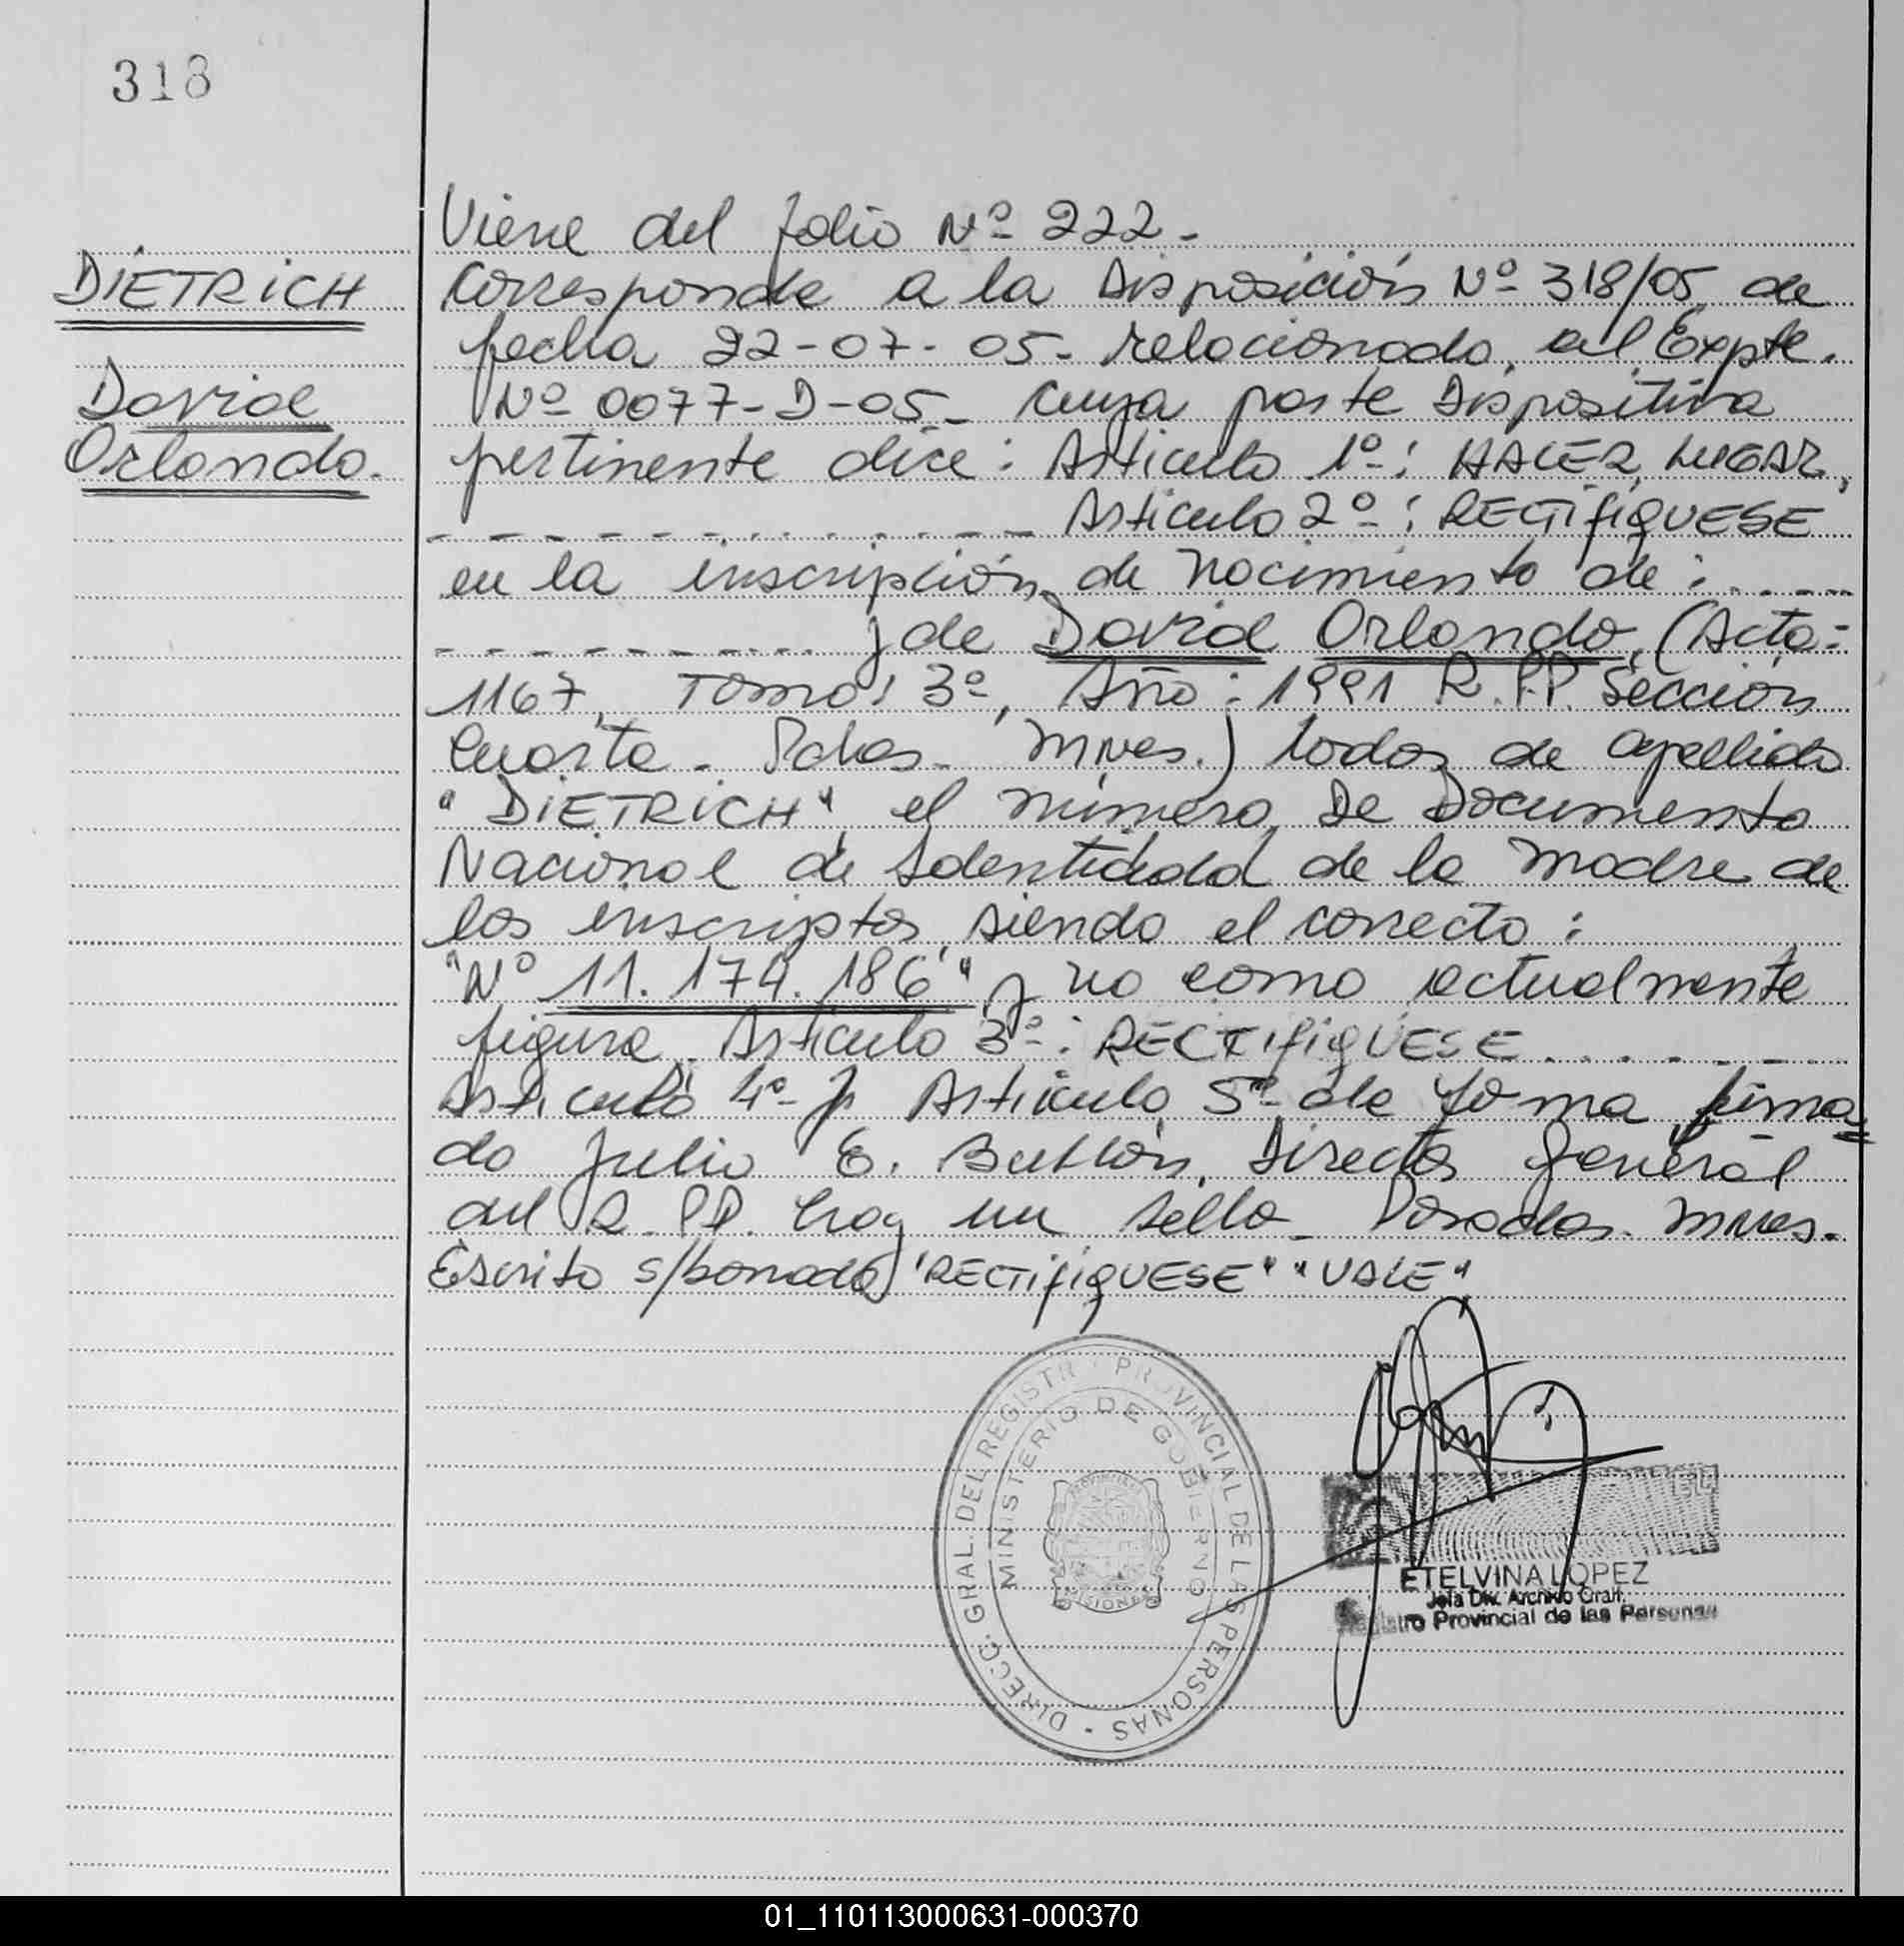 318
Viene del folio Nº 222.
DIETRICH
Corresponde a la Disposición Nº 318/05, de
fecha 22-07-05- relacionado al Expte.
David
Nº 0077-D-05- cuya parte Dispositiva
Orlando.
pertinente dice: Articulo 1º: HACER LUGAR,
Articulo 2º: RECTIFIQUESE
en la inscripción de nacimiento de:
y de David Orlando, (Acta:
1167, Tomo: 3º, Año: 1991 R.PP. Sección
Cuarta- Pdas- Mnes.) todos de apellido
"DIETRICH" el número de Documento
Nacional de Identidad de la madre de
los inscriptos, siendo el correcto:
"Nº 11.174.186" y no como actualmente
figura. Articulo 3º: RECTIFIQUESE
Articulo 4º y Articulo 5º de forma firma=
do Julio E. Director General
del R.PP. hay un sello- Posadas. Mnes.
Escrito s/borrado "RECTIFIQUESE" "VALE"
DIRECC. GRAL. DEL REGISTR PROVINCIAL DE LAS PERSONAS
MINISTERIO DE GOBIERNO
MISIONES
ETELVINA LOPEZ
Jefa Div. Archivo Gral.
Registro Provincial de las Personas
01_110113000631-000370